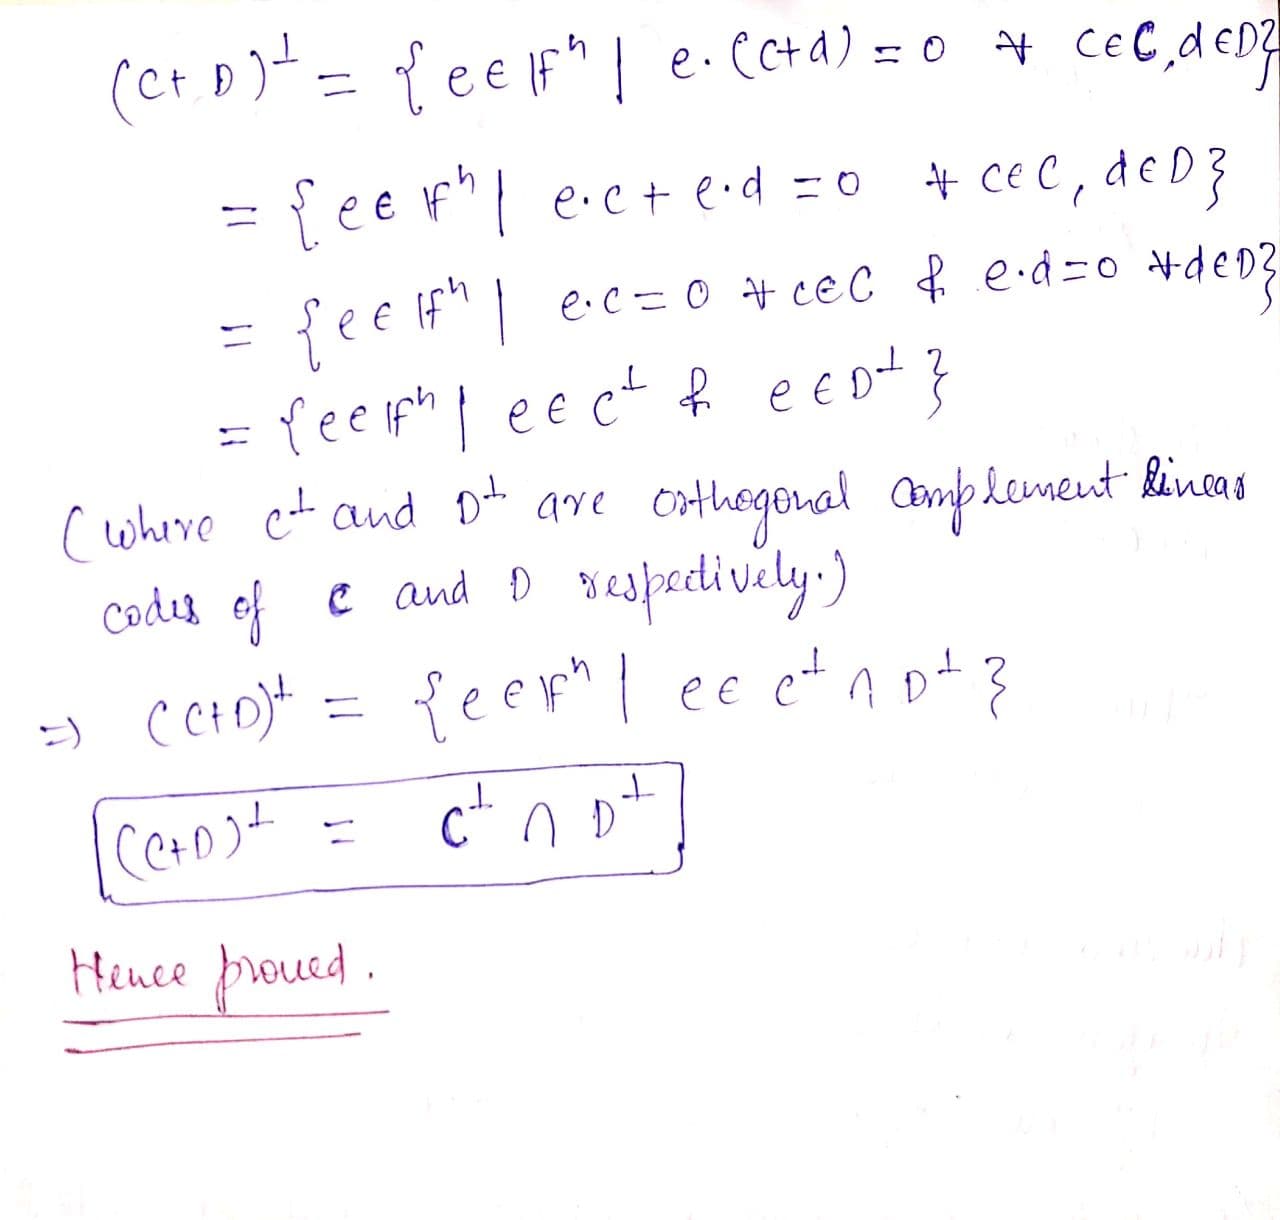 (C+D)^⊥ = {e ∈ 𝔽^n | e.(c+d) = 0 ∀ c∈C, d∈D}
= {e ∈ 𝔽^n | e.c + e.d = 0 ∀ c∈C, d∈D}
= {e ∈ 𝔽^n | e.c = 0 ∀ c∈C & e.d = 0 ∀ d∈D}
= {e ∈ 𝔽^n | e ∈ C^⊥ & e ∈ D^⊥}
(where C^⊥ and D^⊥ are orthogonal complement linear
codes of C and D respectively.)
⇒ (C+D)^⊥ = {e ∈ 𝔽^n | e ∈ C^⊥ ∩ D^⊥}
(C+D)^⊥ = C^⊥ ∩ D^⊥
Hence proved.